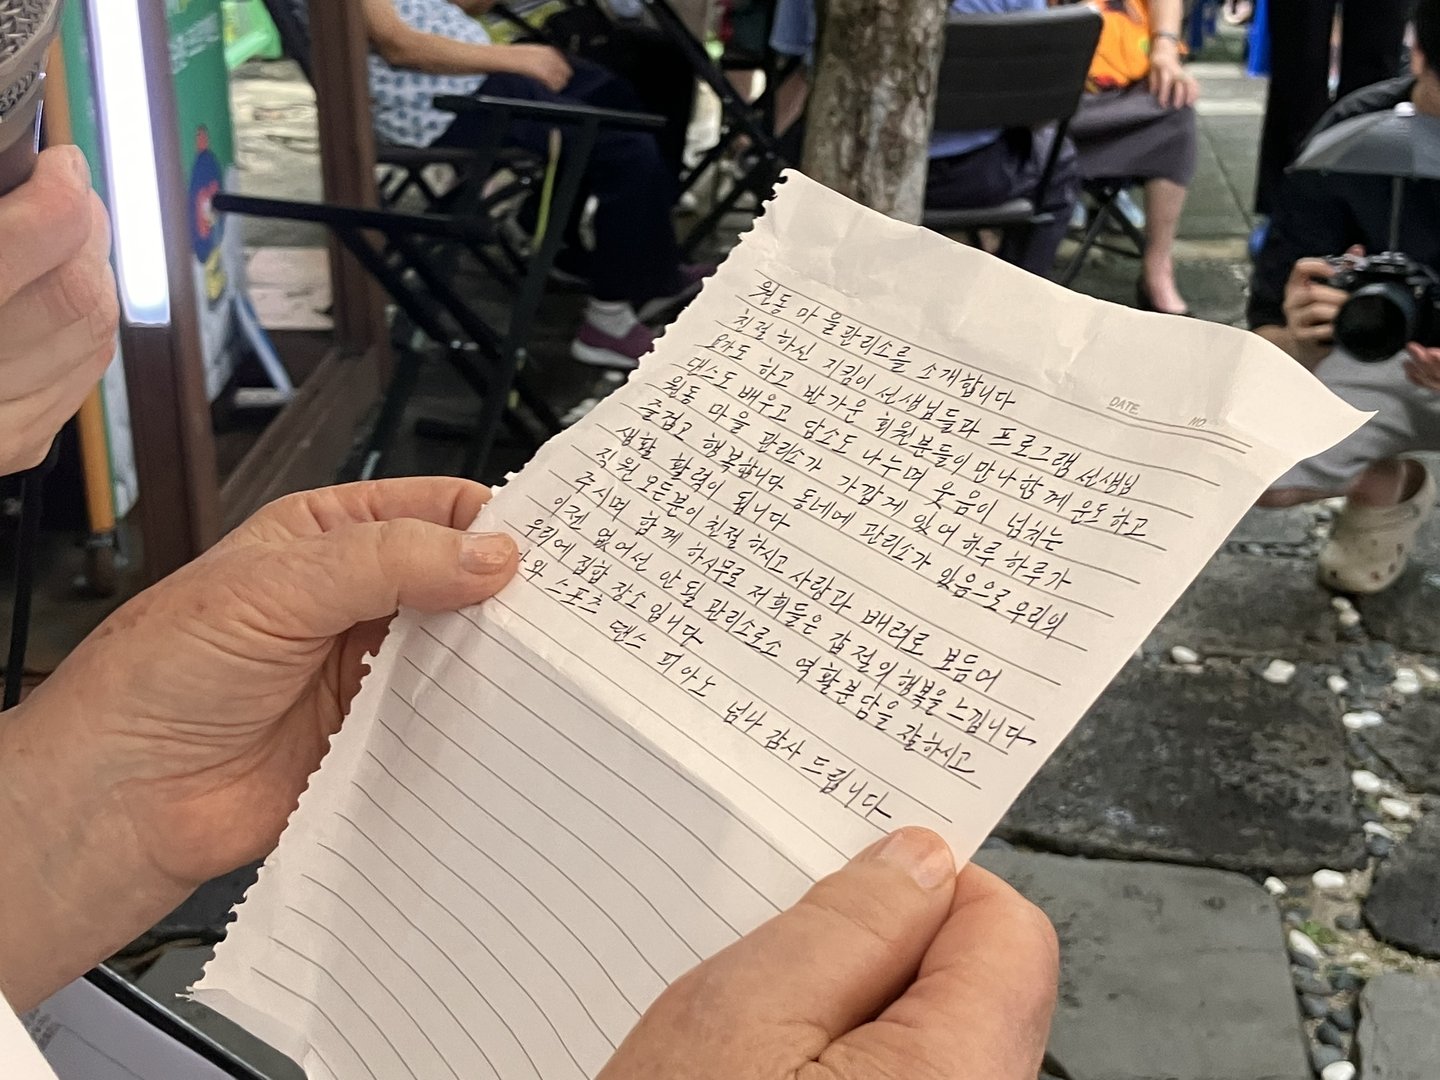 DATE NO
원동 마을관리소를 소개합니다
친절 하신 지킴이 선생님들과 프로그램 선생님
요가도 하고 반가운 회원분들이 만나 함께 운동하고
댄스도 배우고 담소도 나누며 웃음이 넘치는
원동 마을 관리소가 가깝게 있어 하루 하루가
즐겁고 행복합니다 동네에 관리소가 있음으로 우리의
생활 활력이 됩니다
직원 모든분이 친절하시고 사랑과 배려로 보듬어
주시며 함께 하시무로 저희들은 갑절의 행복을 느낍니다
이젠 없어선 안될 관리소로소 역활분담을 잘하시고
우리에 집합 장소입니다
스포츠 댄스 피아노 넘나 감사 드립니다